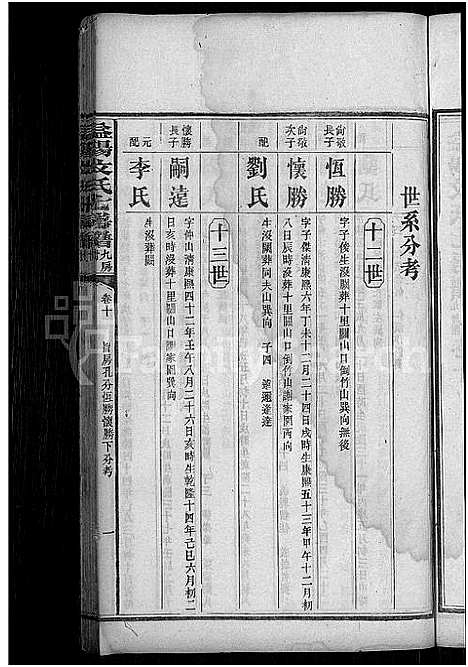 世系分考
十二世
尙敬長子
恆勝
字子俊生沒闕葬十里關山口倒竹山巽向無後
尙敬次子
懷勝
字子傑清康熙六年丁未十二月二十四日戌時生康熙五十三年甲午十二月初
八日辰時沒葬十里關山口倒竹山謝家園丙向
配
劉氏
生沒闕葬同夫山巽向 子四 達
十三世
懷勝長子
嗣達
字仲山清康熙四十二年壬午八月二十六日亥時生乾隆十四年己巳六月初二
日亥時沒葬十里關山口謝家園巽向
元配
李氏
生沒葬闕
益陽文氏七譜
九房
卷十
房孔分恆勝懷勝下分考
一